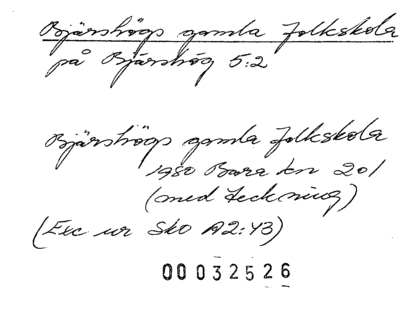 Bjärshögs gamla folkskola
på Bjärshög 5:2
Bjärshögs gamla folkskola
1980 Bara kn 201
(med teckning)
(Exc ur Sko A2:43)
00032526